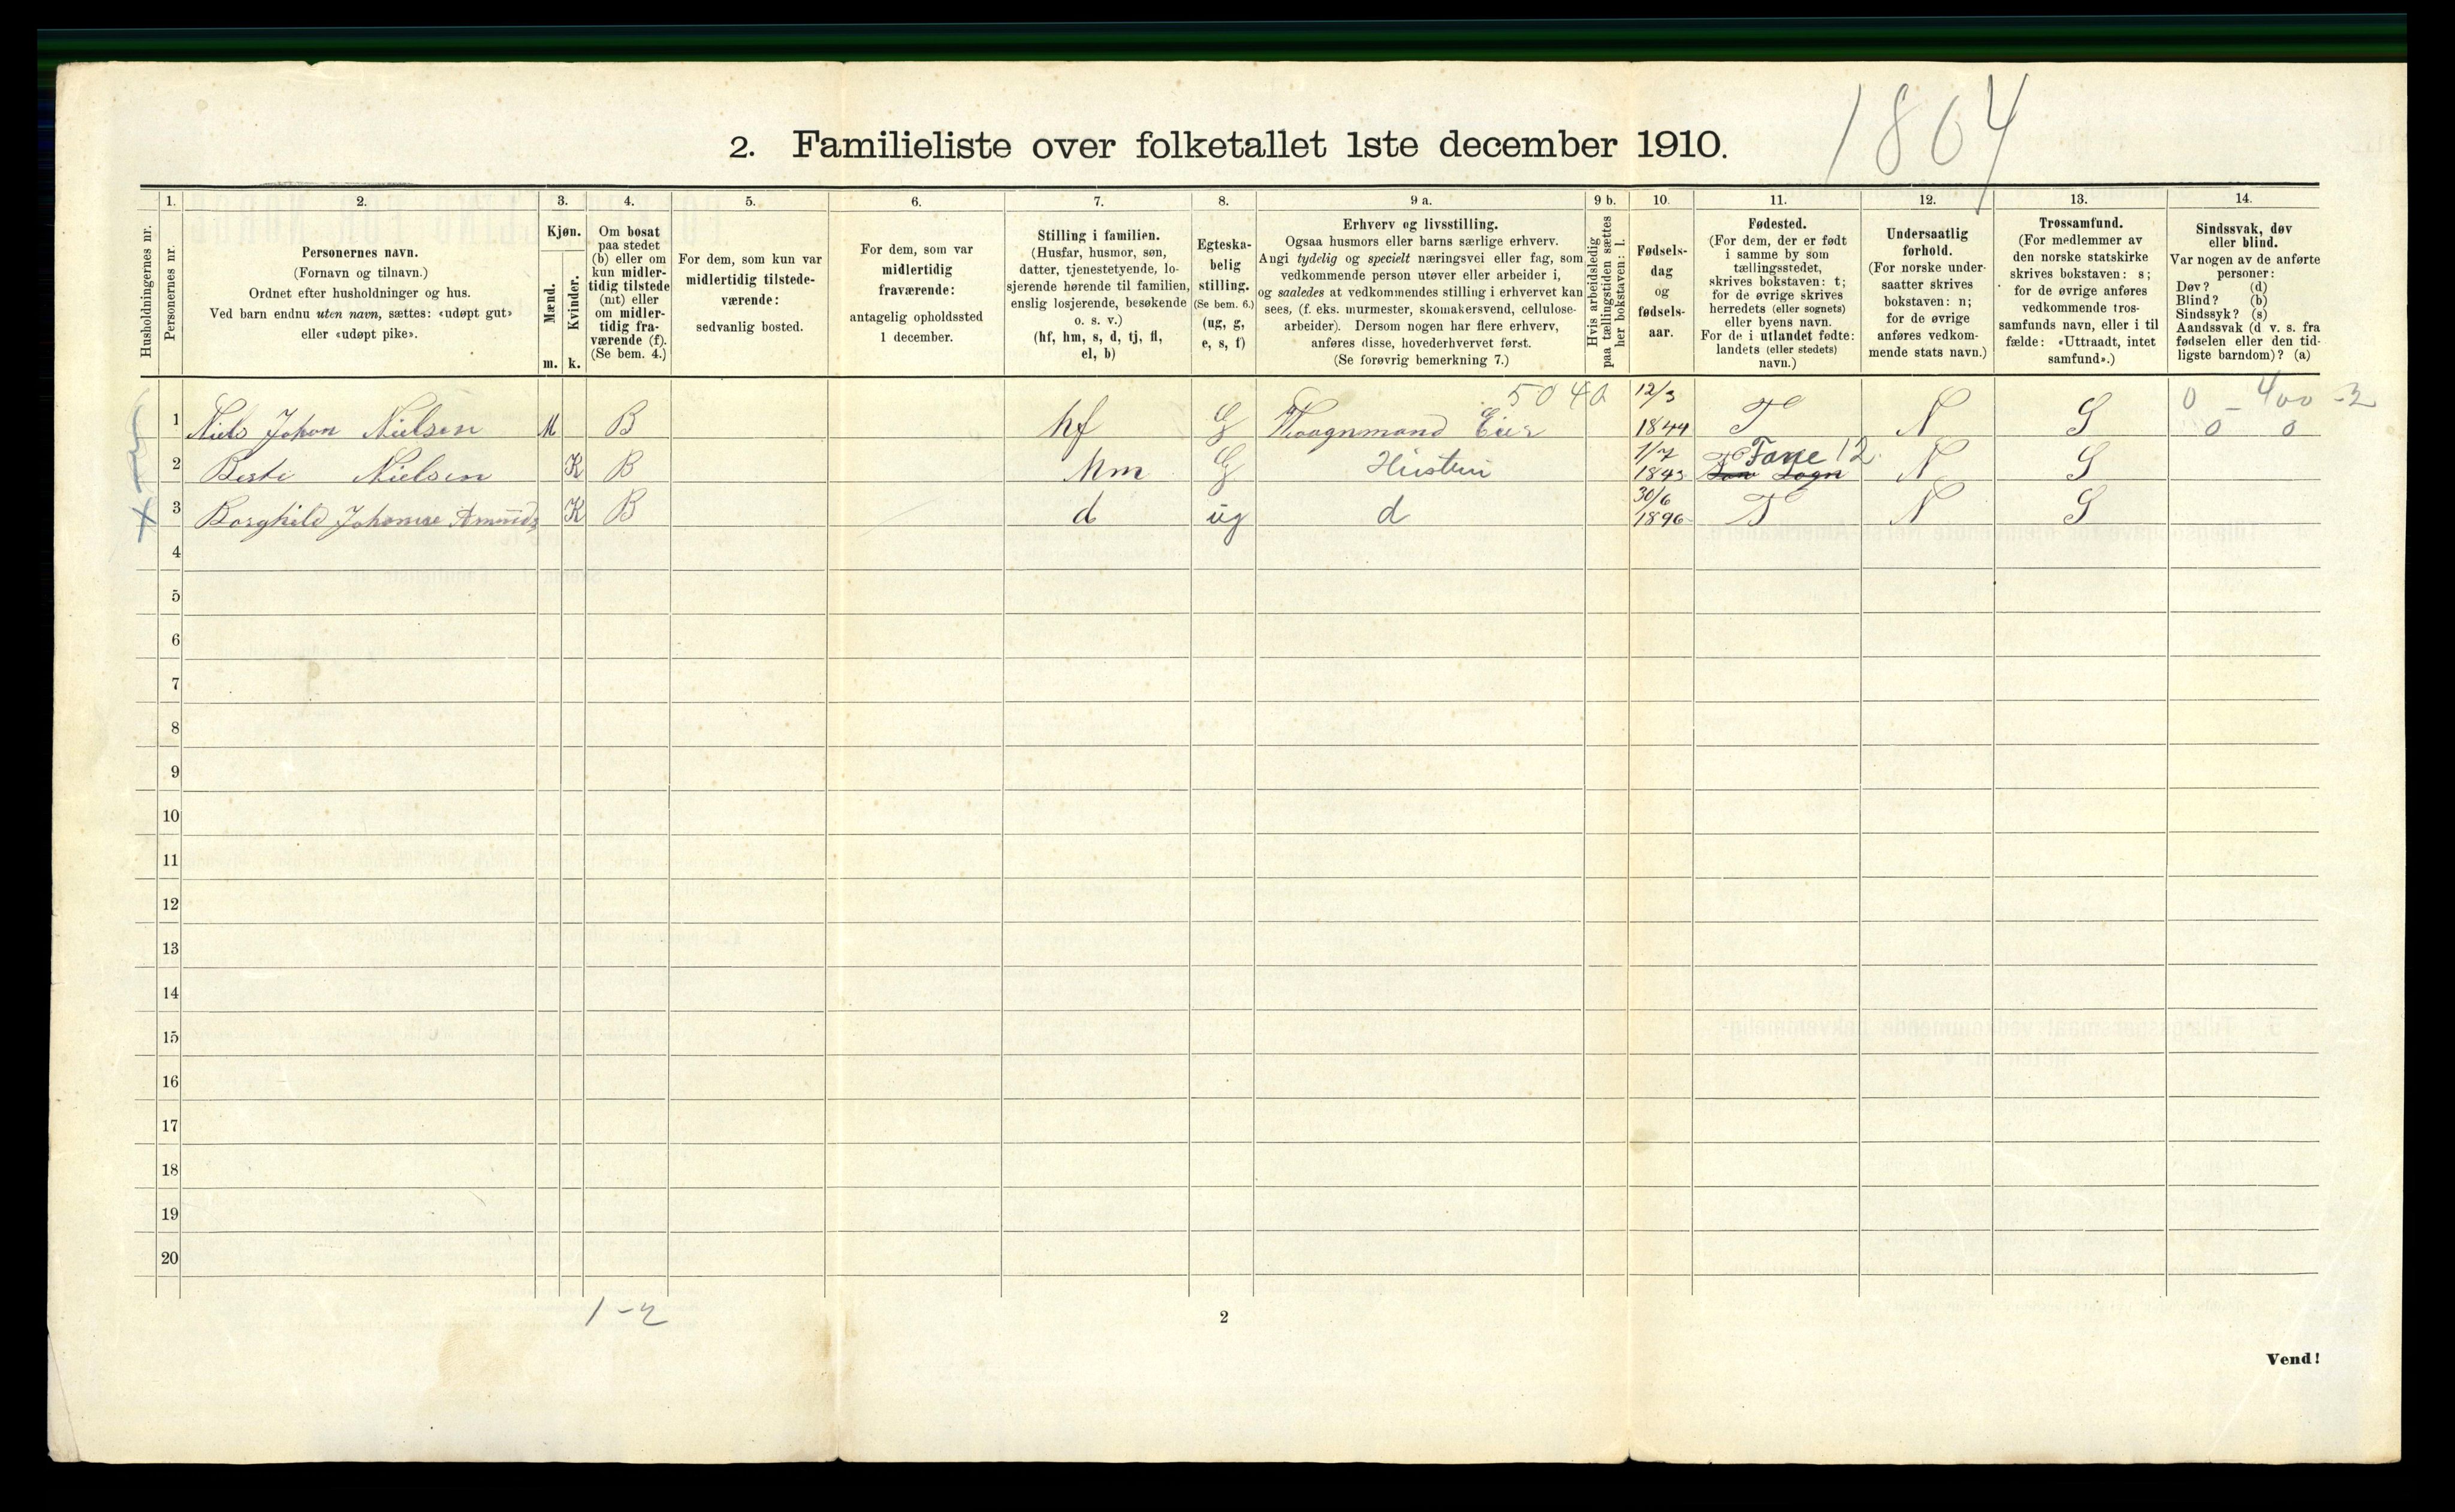 1804
2. Familieliste over folketallet 1ste december 1910.
Husholdningernes nr.
1.
Personernes nr.
2.
Personernes navn.
(Fornavn og tilnavn.)
Ordnet efter husholdninger og hus.
Ved barn endnu uten navn, sættes: «udøpt gut»
eller «udøpt pike».
3.
Kjøn.
Mænd.
Kvinder.
m. k.
4.
Om bosat
paa stedet
(b) eller om
kun midler-
tidig tilstede
(mt) eller
om midler-
tidig fra-
værende (f).
(Se bem. 4.)
5.
For dem, som kun var
midlertidig tilstede-
værende:
sedvanlig bosted.
6.
For dem, som var
midlertidig
fraværende:
antagelig opholdssted
1 december.
7.
Stilling i familien.
(Husfar, husmor, søn,
datter, tjenestetyende, lo-
sjerende hørende til familien,
enslig losjerende, besøkende
o. s. v.)
(hf, hm, s, d, tj, fl,
el, b)
8.
Egteska-
belig
stilling.
(Se bem. 6.)
(ug, g,
e, s, f)
9 a.
Erhverv og livsstilling.
Ogsaa husmors eller barns særlige erhverv.
Angi tydelig og specielt næringsvei eller fag, som
vedkommende person utøver eller arbeider i,
og saaledes at vedkommendes stilling i erhvervet kan
sees, (f. eks. murmester, skomakersvend, cellulose-
arbeider). Dersom nogen har flere erhverv,
anføres disse, hovederhvervet først.
(Se forøvrig bemerkning 7.)
9 b.
Hvis arbeidsledig
paa tællingstiden sættes
her bokstaven: l.
10.
Fødsels-
dag
og
fødsels-
aar.
11.
Fødested.
(For dem, der er født
i samme by som
tællingsstedet,
skrives bokstaven: t;
for de øvrige skrives
herredets (eller sognets)
eller byens navn.
For de i utlandet fødte:
landets (eller stedets)
navn.)
12.
Undersaatlig
forhold.
(For norske under-
saatter skrives
bokstaven: n;
for de øvrige
anføres vedkom-
mende stats navn.)
13.
Trossamfund.
(For medlemmer av
den norske statskirke
skrives bokstaven: s;
for de øvrige anføres
vedkommende tros-
samfunds navn, eller i til
fælde: «Uttraadt, intet
samfund».)
14.
Sindssvak, døv
eller blind.
Var nogen av de anførte
personer:
Døv? (d)
Blind? (b)
Sindssyk? (s)
Aandssvak (d v. s. fra
fødselen eller den tid-
ligste barndom)? (a)
5040 12/3 0 - 400 -2
1 Niels Johan Nielsen M B hf G Eier 1844 T N S 0 0
1/7 Fane 12
2 Nielsen K B Hm G Hustru 1843 Sogn N S
30/6
3 Borghild K B d ug d 1896 T N S
4
5
6
7
8
9
10
11
12
13
14
15
16
17
18
19
20
1-2
2
Vend!